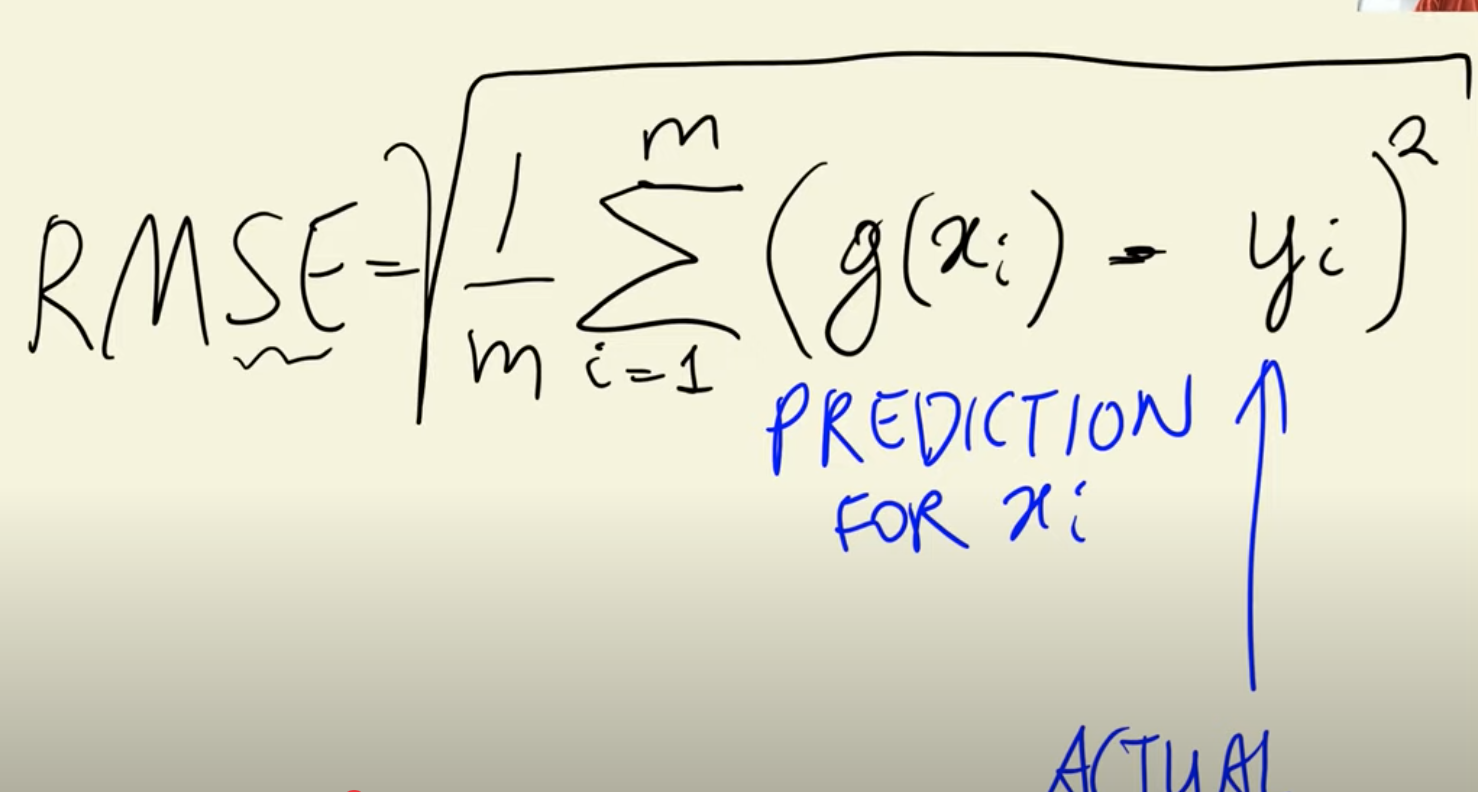 RMSE = √(1/m ∑_{i=1}^{m} (g(x_i) - y_i)^2)
PREDICTION
FOR x_i
ACTUAL